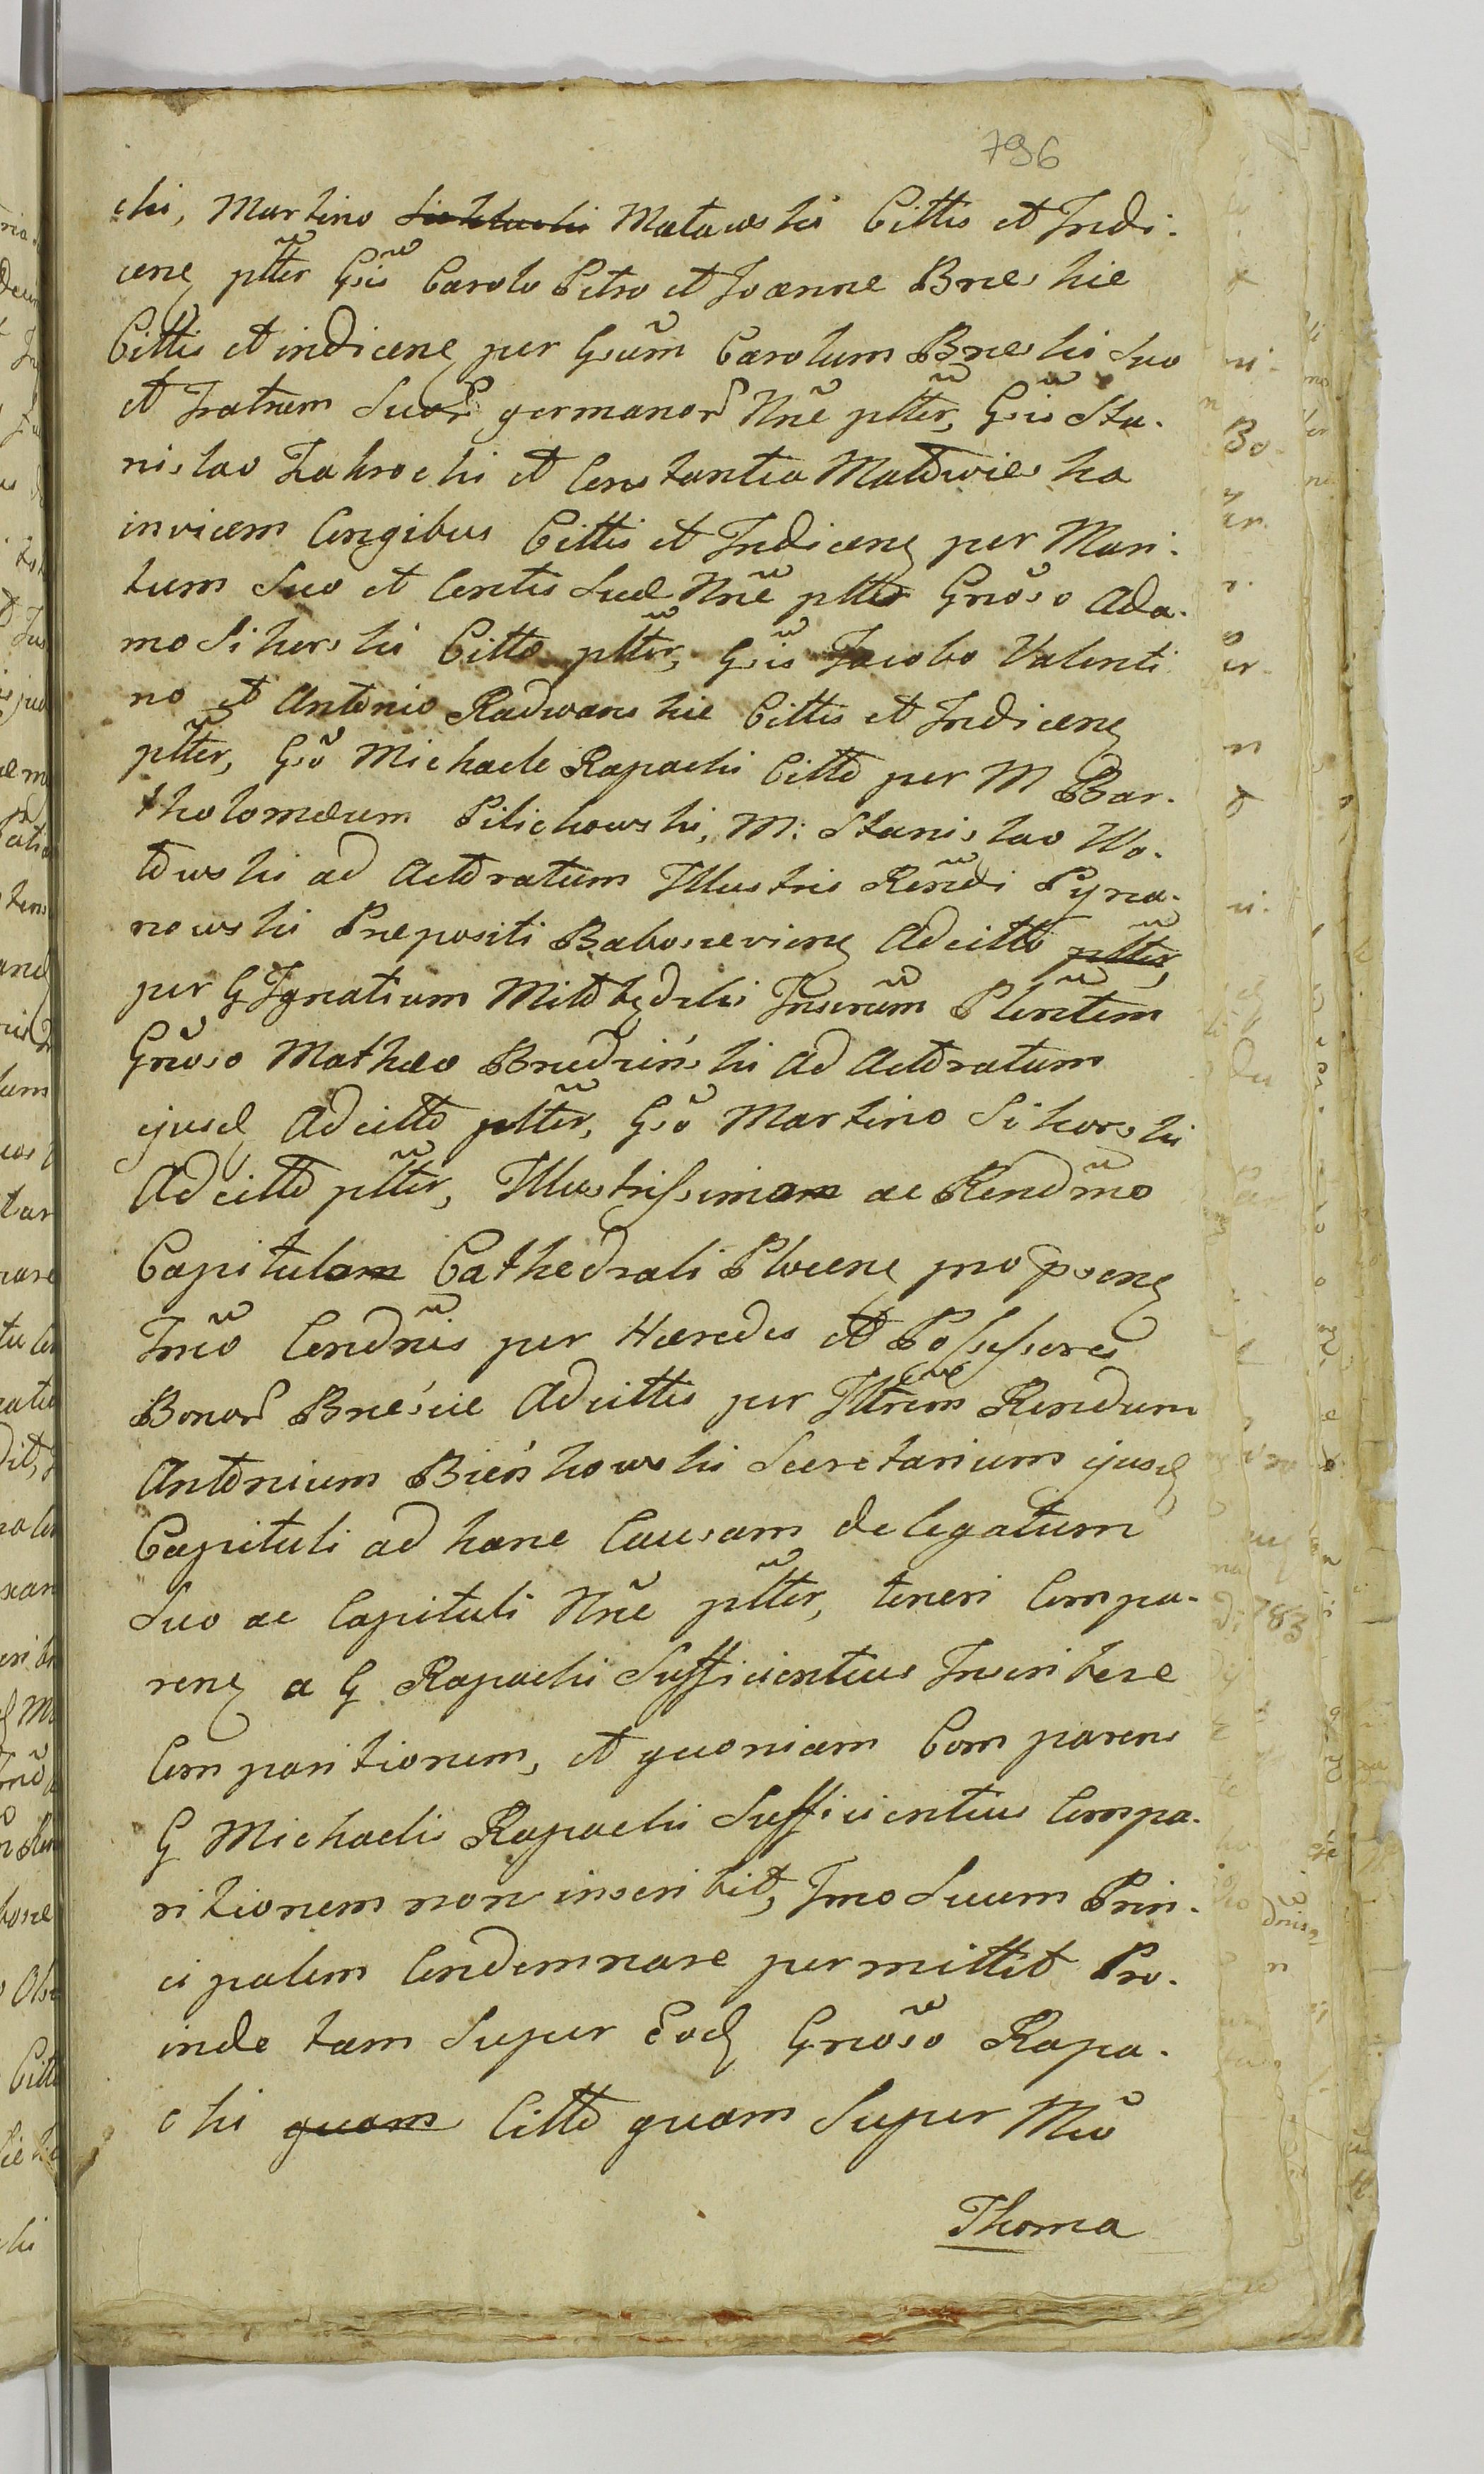 796
cki, Martino Matawski Cittis et Indi-
cenꝫ pltter Gsis Carolo Petro et Joanne Brzeskie
Cittis et indicenꝫ per Gsum Carolum Brzeski suo
et Fratrum Suor germanor Nne pltter, Gsis Sta-
nislao Zakrocki et Constantia Matowieska
invicem Congibus Cittis et Indicenꝫ per Mari-
tum Suo et Contis Suæ Nne pltter Gnoso Ada-
mo Sikorski Citto pltter, Gsis Jacobo Valenti
no et Antonio Radwanskie Cittis et Indicenꝫ
pltter, Gso Michaele Rapacki Citto per M Bar-
tholomæum Pilichowski, M: Stanislao Wo-
towski ad Actoratum Illustris Rendi Pyrza-
nowski Prepositi Baboszeviene Adcitto pltter,
per G Ignatium Mitobędzki Inserum Plentem
Gnoso Mathæo Brudzinski ad Actoratum
ejusd Adcitto pltter, Gso Martino Sikorski
Adcitto pltter, Illustrissimam ac Rendmo
Capitulam Cathedrali Plocenꝫ pro poenꝫ
Imo Condnis per Hæredes et Possessores
Bonor Brzeście Adcittis per Illrem Rendum
Antonium Bieńkowski Secretarium ejusd
Capituli ad hanc Causam delegatum
Suo ac Capituli Nne pltter, teneri Compa-
renꝫ a G Rapacki Sufficientius Inscribere
Comparitionem, et quoniam Comparens
G Michaelis Rapacki Sufficientius Compa-
ritionem non inscribit, Imo Suum Prin-
cipalem Condemnare permittit Pro-
inde tam Super Eod Gnoso Rapa-
cki quam Citto quam Super Mco
Thoma